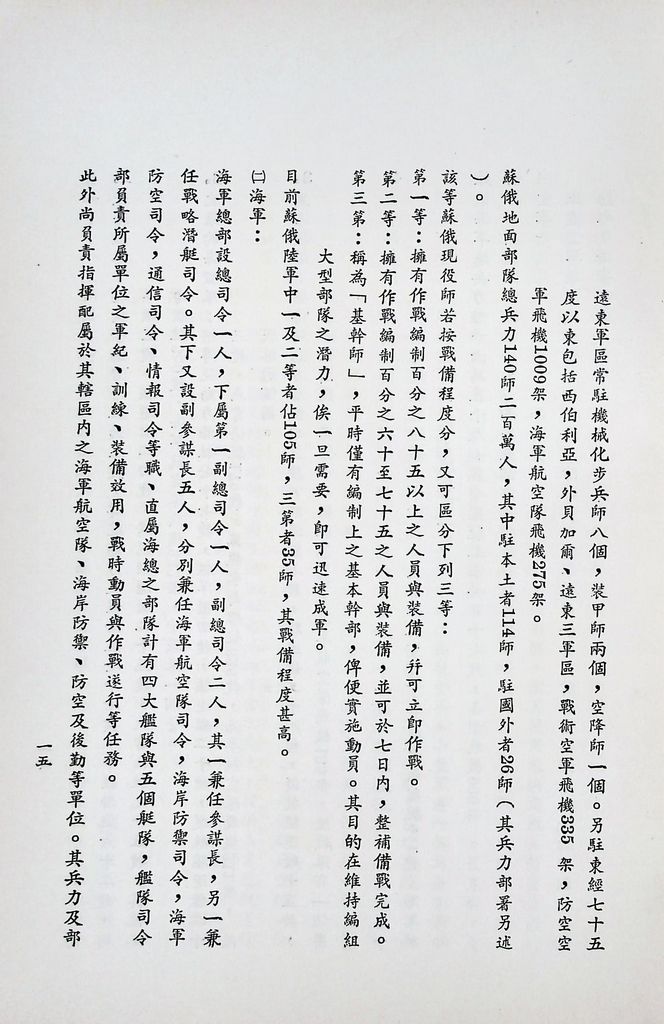 遠東軍區常駐機械化步兵師八個，裝甲師兩個，空降師一個。另駐東經七十五
度以東包括西伯利亞，外貝加爾、遠東三軍區，戰術空軍飛機335 架，防空空
軍飛機1009架，海軍航空隊飛機275架。
蘇俄地面部隊總兵力140師二百萬人，其中駐本土者114師，駐國外者26師（其兵力部署另述
）。
該等蘇俄現役師若按戰備程度分，又可區分下列三等：
第一等：擁有作戰編制百分之八十五以上之人員與裝備，并可立即作戰。
第二等：擁有作戰編制百分之六十至七十五之人員與裝備，並可於七日內，整補備戰完成。
第三第：稱為「基幹師」，平時僅有編制上之基本幹部，俾便實施動員。其目的在維持編組
大型部隊之潛力，俟一旦需要，即可迅速成軍。
目前蘇俄陸軍中一及二等者佔105師，三第者35師，其戰備程度甚高。
㈡海軍：
海軍總部設總司令一人，下屬第一副總司令一人，副總司令二人，其一兼任參謀長，另一兼
任戰略潛艇司令。其下又設副參謀長五人，分別兼任海軍航空隊司令，海岸防禦司令，海軍
防空司令，通信司令、情報司令等職、直屬海總之部隊計有四大艦隊與五個艇隊，艦隊司令
部負責所屬單位之軍紀、訓練、裝備效用，戰時動員與作戰遂行等任務。
此外尚負責指揮配屬於其轄區內之海軍航空隊、海岸防禦、防空及後勤等單位。其兵力及部
一五